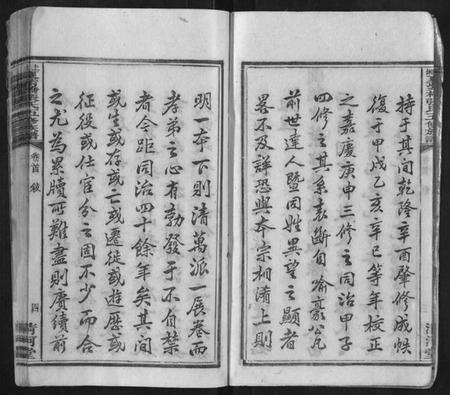 持于其間乾隆辛酉肇修成帙
復于甲戌乙亥辛巳等年校正
之嘉慶庚申三修之同治甲子
四修之其系表斷自喻豪公
前世達人暨因姓異望之顯者
畧不及詳恐與本宗相淆上則
明一本下則清萬派一展卷而
孝弟之心有勃發于不自禁
者今距同治四十餘年矣其間
或生或存或亡或遷徙或遊歷或
征役或仕宦分之固不少而合
之尤為累牘可難盡則賡續前
卷首 敘
四
清河堂